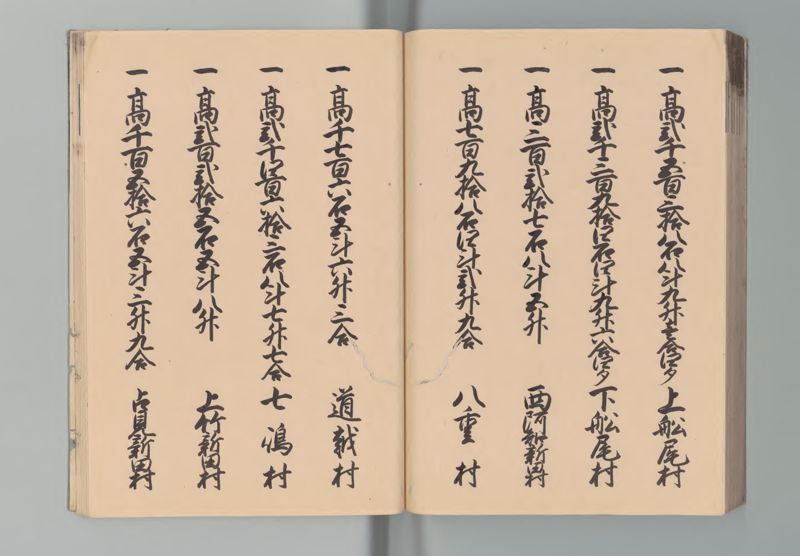 一 高弐千五百六拾八石八斗九升壱合四夕 上船尾村
一 高弐千三百九拾四石四斗九升六合四夕 下船尾村
一 高三百弐拾七石八斗五升 西阿知新田村
一 高七百九拾八石四斗弐升九合 八重村
一 高千七百六石五斗六升三合 道越村
一 高弐千四百六拾三石八斗七升七合 七嶋村
一 高弐百弐拾五石五斗八升 上竹新田村
一 高千百五拾六石五斗三升九合 占見新田村